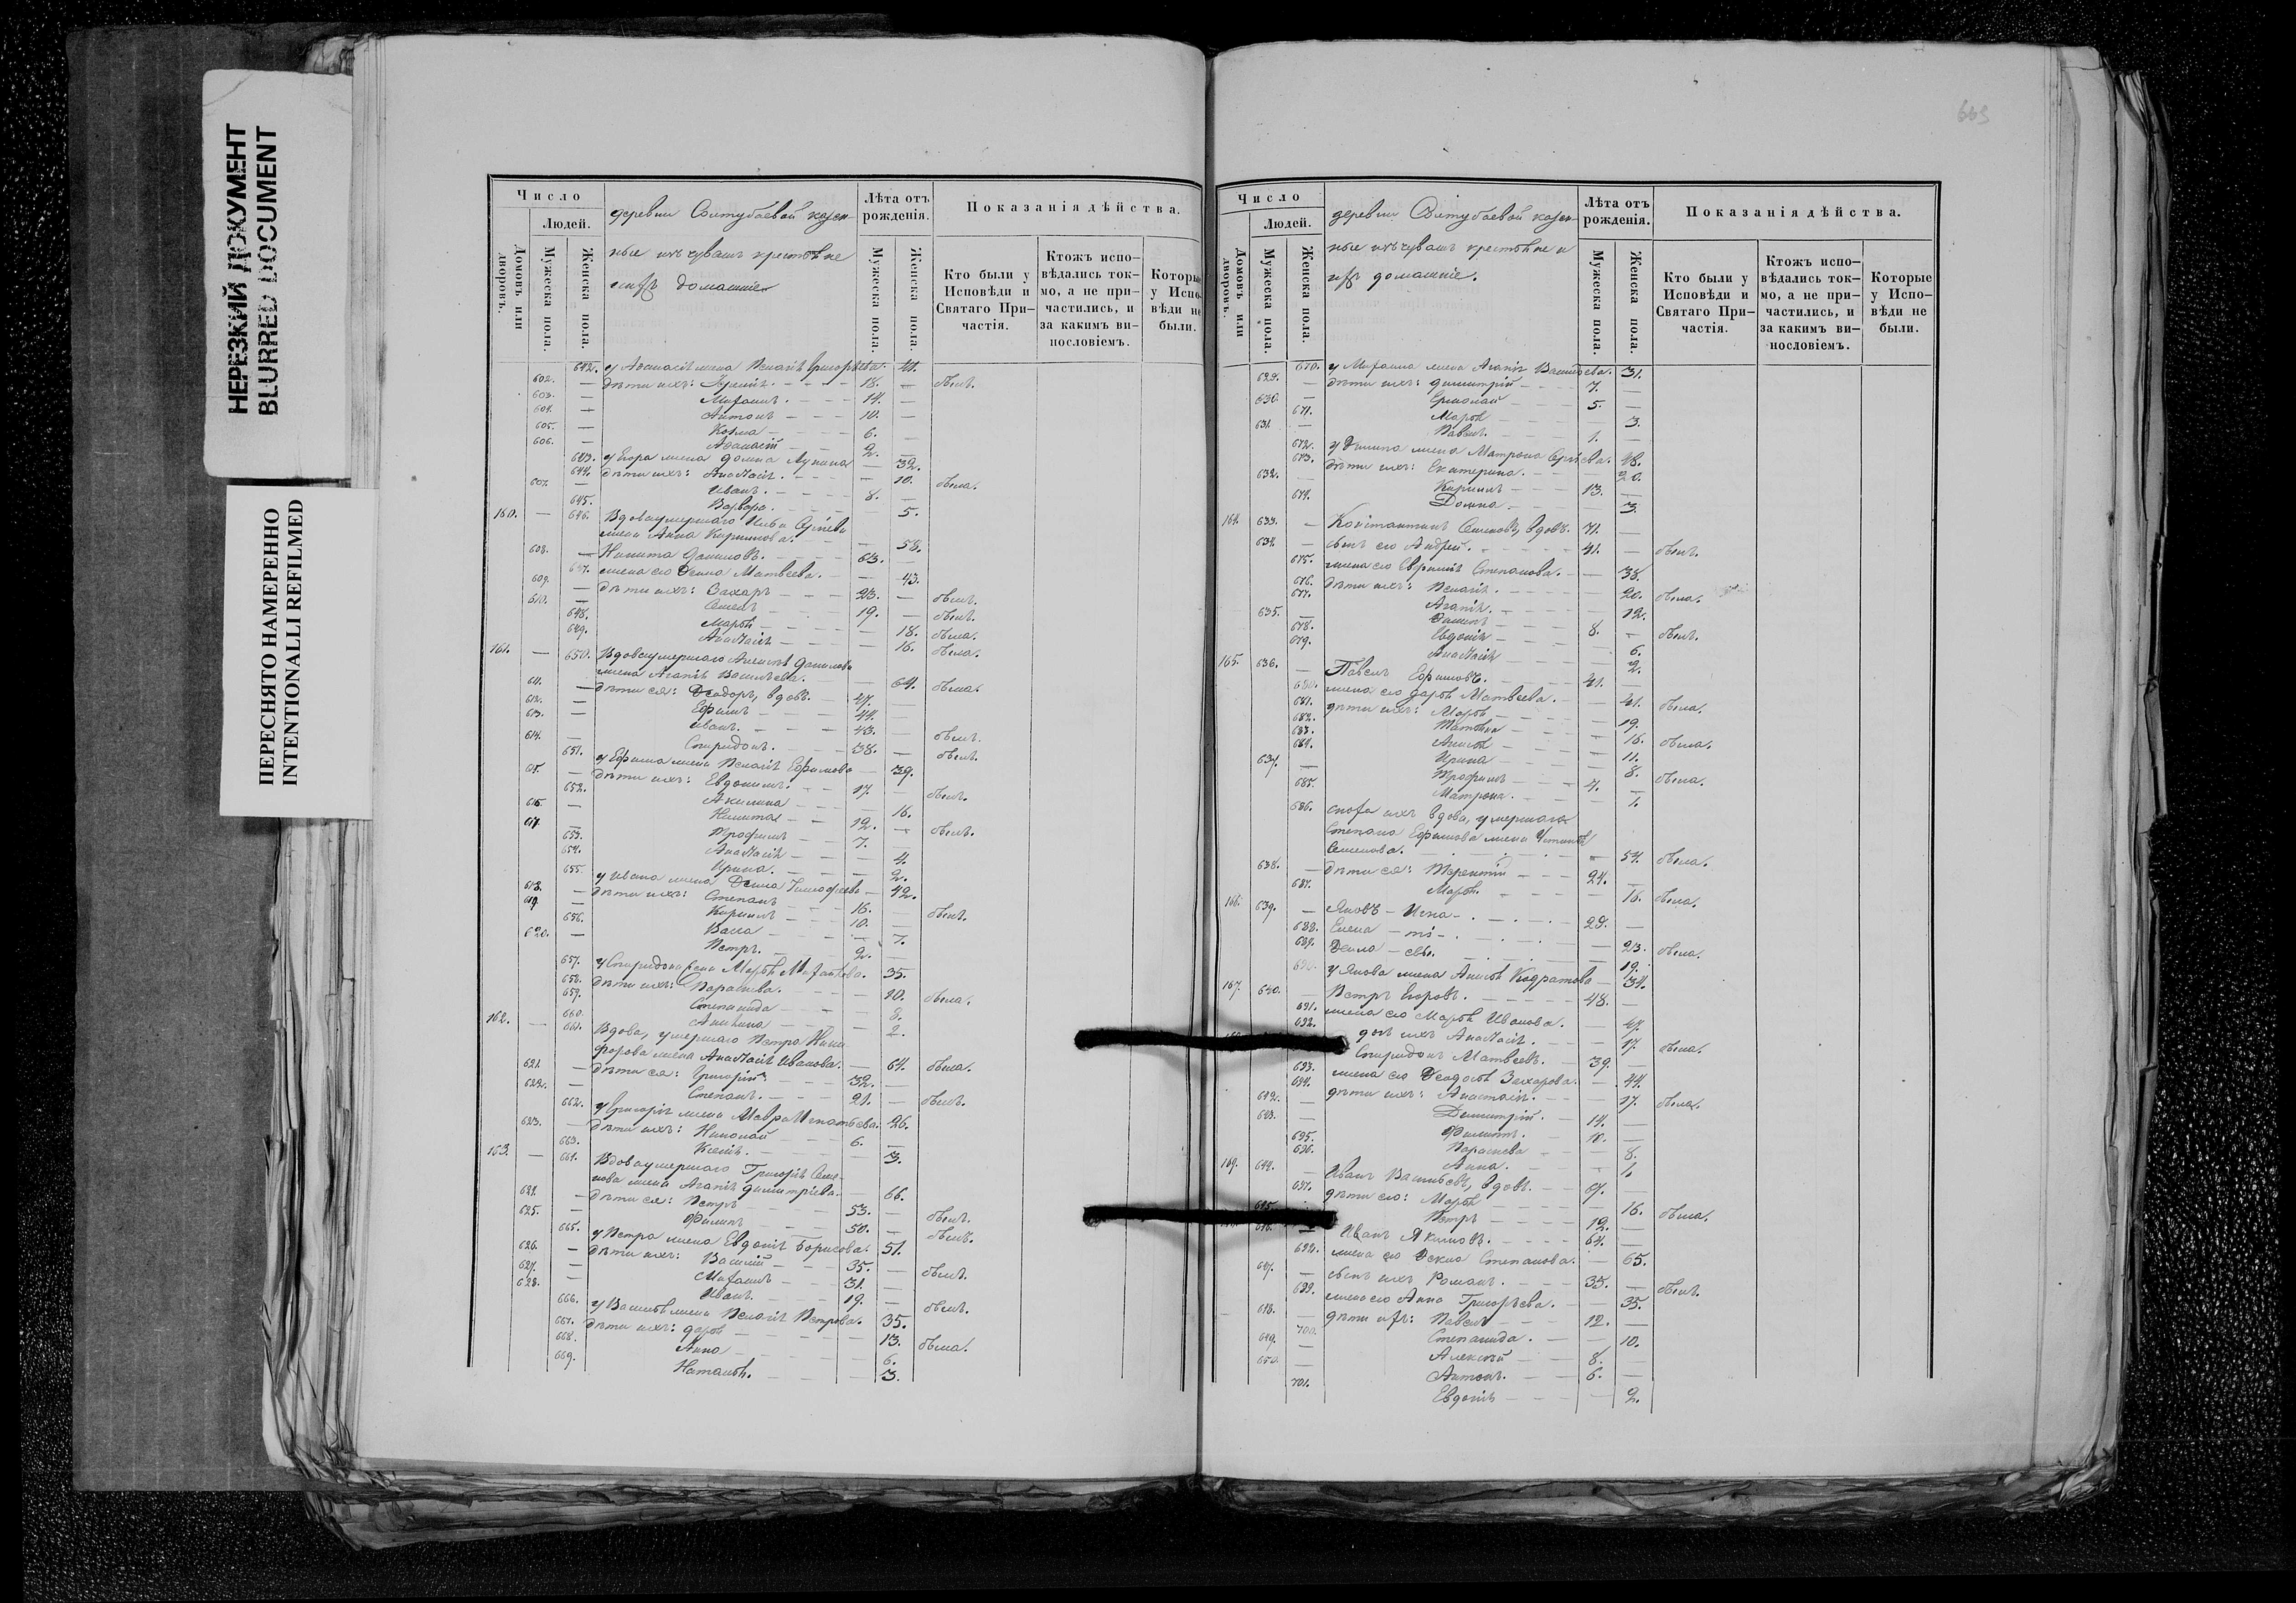 НЕРЕЗКИЙ ДОКУМЕНТ
BLURRED DOCUMENT
ПЕРЕСНЯТО НАМЕРЕННО
INTENTIONALLI REFILMED
Число
Людей.
Домовъ или дворовъ.
Мужеска пола.
Женска пола.
деревни казен-
ные изъ чувашъ крестьяне
и ихъ домашніе
Лѣта отъ рожденія.
Мужеска пола.
Женска пола.
Показанія дѣйства.
Кто были у Исповѣди и Святаго При-частія.
Ктожъ испо-вѣдались ток-мо, а не при-частились, и за какимъ ви-нословіемъ.
Которые у Испо-вѣди не были.
642. у Аѳанасія жена Пелагія Григорьева. 41.
602. — дѣти ихъ: 18. — былъ.
603. — Михаилъ. 14. —
604. — Антонъ 10. —
605. — Козма 6. —
606. — Аѳанасій 2. —
643. у Егора жена Домна Лукина — 32.
644. дѣти ихъ: Анастасія. — 10. была.
607. — Иванъ. 8. —
645. Варвара. — 5.
160. — 646. Вдова умершаго Ильи Сергѣева
жена Анна Кириллова. — 58.
608. — Никита Даниловъ. 63. —
647. жена его Ѳекла Матвѣева. — 43.
609. — дѣти ихъ: Захаръ 23. — былъ.
610. — Семенъ 19. — былъ.
648. Марья — 18. была.
649. Анастасія — 16. была.
161. — 650. Вдова умершаго Алексѣя Данилова
жена Агапія Васильева. — 64. была.
611. — дѣти ея: Ѳеодоръ, вдовъ. 47. —
612. — Ефимъ 44. —
613. — Иванъ. 43. — былъ.
614. — Спиридонъ. 38. — былъ.
651. у Ефима жена Пелагія Ефимова — 39.
615. — дѣти ихъ: Евдокимъ. 17. былъ.
652. Акилина — 16.
616. — Никита 12. — былъ.
617. — Трофимъ 7. —
653. Анастасія — 4.
654. Ирина. — 2.
655. у Ивана жена Ѳекла Тимофеева — 42.
618. — дѣти ихъ: Степанъ 16. — былъ.
619. — Кириллъ 10. —
656. Васса — 7.
620. — Петръ. 2. —
657. у Спиридона жена Марья Михайлова. 35.
658. дѣти ихъ: Параскева. — 10. была.
659. Степанида — 8.
660. Акилина — 2.
162. — 661. Вдова, умершаго Петра Ники-
форова жена Анастасія Иванова. — 64. была.
621. — дѣти ея: Григорій 32. —
622. — Степанъ. 21. — былъ.
662. у Григорія жена Мавра Игнатьева. 26.
623. — дѣти ихъ: Николай 6. —
663. Ксенія. — 3.
163. — 664. Вдова умершаго Григорія Семе-
нова жена Агапія Димитріева. — 66.
624. — дѣти ея: Петръ 53. — былъ.
625. — Филипъ 50. — былъ.
665. у Петра жена Евдокія Борисова. 51.
626. — дѣти ихъ: Василій 35. — былъ.
627. — Михаилъ 31. —
628. — Иванъ. 19. — былъ.
666. у Василья жена Пелагія Петрова. 35.
667. дѣти ихъ: Дарья — 13. была.
668. Анна — 6.
669. Наталья. — 3.
Число
Людей.
Домовъ или дворовъ.
Мужеска пола.
Женска пола.
деревни казен-
ные изъ чувашъ крестьяне и
ихъ домашніе.
Лѣта отъ рожденія.
Мужеска пола.
Женска пола.
Показанія дѣйства.
Кто были у Исповѣди и Святаго При-частія.
Ктожъ испо-вѣдались ток-мо, а не при-частились, и за какимъ ви-нословіемъ.
Которые у Испо-вѣди не были.
670. у Михаила жена Агапія Васильева. 31.
629. — дѣти ихъ: Димитрій 7. —
630. — Ермолай 5. —
671. Марья — 3.
631. — Павелъ. 1. —
672. у Филипа жена Матрона Сергѣева. 48.
673. дѣти ихъ: Екатерина. — 20.
632. — Кириллъ 13. —
674. Домна — 3.
164. 633. — Константинъ Семеновъ, вдовъ. 71. —
634. — сынъ его Андрей. 41. — былъ.
675. жена его Евфимія Степанова. — 38.
676. дѣти ихъ: Пелагія. — 20. была.
677. Агапія. — 12.
635. — 8. — былъ.
678. Евдокія — 6.
679. Анастасія — 2.
165. 636. — Павелъ Ефимовъ. 41. —
680. жена его Дарья Матвѣева. — 41. была.
681. дѣти ихъ: Марья — 19.
682. Татьяна — 16. была.
683. — 11.
684. Ирина — 8.
637. — Трофимъ 4. — была.
685. Матрона. — 1.
686. сноха ихъ вдова, умершаго
Степана Ефимова жена Устинья
Семенова. — 54. была.
638. — дѣти ея: Терентій 24. —
687. Марья. — 16. была.
166. 639. — Яковъ 29. —
688. Елена — 23. была.
689. Ѳекла — 19.
690. у Якова жена Кодратова — 34.
167. 640. — Петръ Егоровъ. 48. —
691. жена его Марья Иванова. — 47.
692. дочь ихъ Анастасія. — 17. была.
Спиридонъ Матвѣевъ. 39. —
693. жена его Ѳеодосья Захарова. — 44.
694. дѣти ихъ: Анастасія. — 17. была.
642. — Димитрій 14. —
643. — Филипъ. 10. —
695. Параскева — 8.
696. Анна. — 1.
169. 644. — Иванъ Васильевъ, вдовъ. 67. —
697. дѣти его: Марья — 16. была.
645. — Петръ 12. —
646. — Иванъ Якимовъ. 64. —
698. жена его Ѳекла Степанова. — 65.
647. — сынъ ихъ Романъ. 35. — былъ.
699. жена его Анна Григорьева. — 35.
648. — дѣти ихъ: Павелъ 12. —
700. Степанида. — 10.
649. — Алексѣй 8. —
650. — Антонъ. 6. —
701. Евдокія — 2.